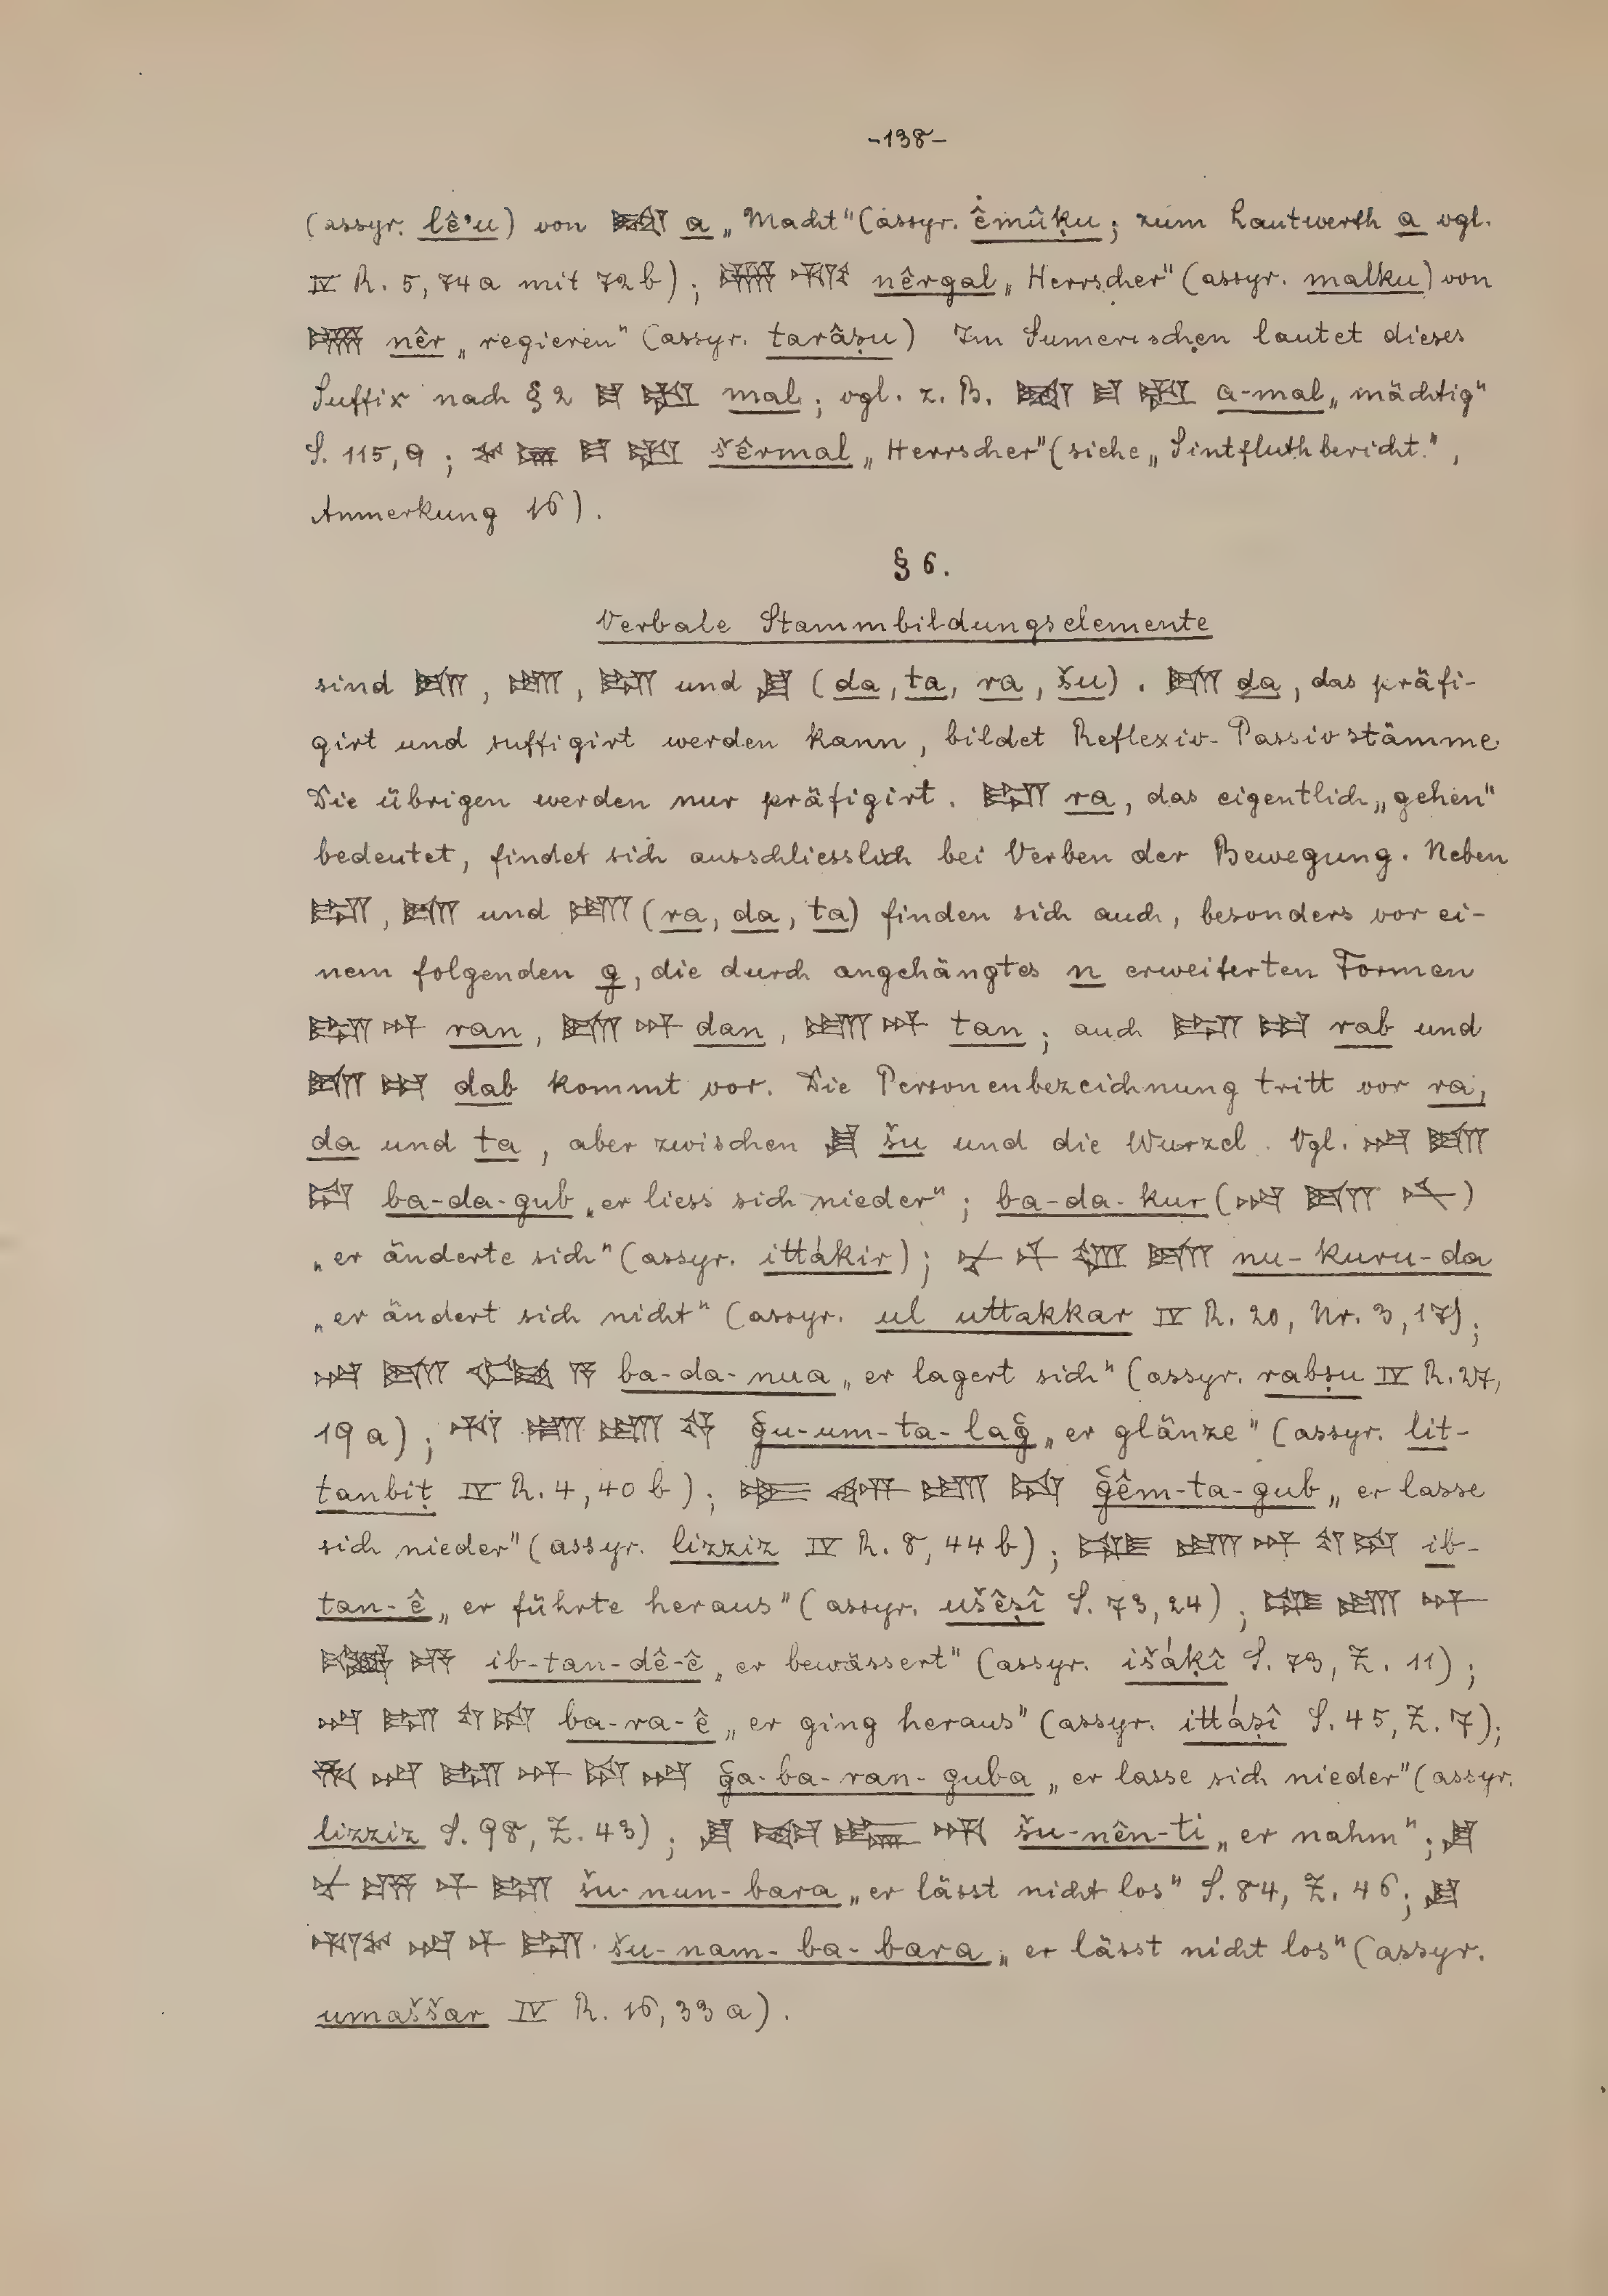 -138-
(assyr. lê'u) von 𒀉 a „Macht“ (assyr. êmûḳu; zum Lautwerth a vgl.
IV R. 5, 74a mit 72b); nêrgal „Herrscher“ (assyr. malku) von
nêr „regieren“ (assyr. tarâṣu) Im Sumerischen lautet dieses
Suffix nach § 2 mal; vgl. z. B. a-mal „mächtig“
S. 115, 9; šêrmal „Herrscher“ (siehe „Sintfluthbericht“,
Anmerkung 16).
§ 6.
Verbale Stammbildungselemente
sind 𒁕, 𒋫, 𒊏 und 𒋗 (da, ta, ra, šu). 𒁕 da, das präfi-
girt und suffigirt werden kann, bildet Reflexiv-Passivstämme.
Die übrigen werden nur präfigirt. 𒊏 ra, das eigentlich „gehen“
bedeutet, findet sich ausschliesslich bei Verben der Bewegung. Neben
𒊏, 𒁕 und 𒋫 (ra, da, ta) finden sich auch, besonders vor ei-
nem folgenden g, die durch angehängtes n erweiterten Formen
𒊏𒀭 ran, 𒁕𒀭 dan, 𒋫𒀭 tan; auch 𒊏 rab und
𒁕 dab kommt vor. Die Personenbezeichnung tritt vor ra,
da und ta, aber zwischen 𒋗 šu und die Wurzel. Vgl. 𒁀 𒁕
𒁺 ba-da-gub „er liess sich nieder“; ba-da-kur (𒁀 𒁕 𒉽)
„er änderte sich“ (assyr. ittákir); nu-kuru-da
„er ändert sich nicht“ (assyr. ul uttakkar IV R. 20, Nr. 3, 17);
𒁀 𒁕 𒀀 ba-da-nua „er lagert sich“ (assyr. rabṣu IV R. 27,
19a); 𒄷 𒌝 𒋫 g̃u-um-ta-lag̃ „er glänze“ (assyr. lit-
tanbiṭ IV R. 4, 40b); 𒋫 𒁺 g̃êm-ta-gub „er lasse
sich nieder“ (assyr. lizziz IV R. 8, 44b); 𒅁 𒋫 𒀭 𒌓𒁺 ib-
tan-ê „er führte heraus“ (assyr. ušêṣî S. 73, 24); 𒅁 𒋫 𒀭
ib-tan-dê-ê „er bewässert“ (assyr. išáḳî S. 73, Z. 11);
𒁀 𒊏 𒌓𒁺 ba-ra-ê „er ging heraus“ (assyr. ittáṣî S. 45, Z. 7);
𒄩 𒁀 𒊏 𒀭 𒁺 𒁀 g̃a-ba-ran-guba „er lasse sich nieder“ (assyr.
lizziz S. 98, Z. 43); 𒋗 𒁀 𒋾 šu-nên-ti „er nahm“; 𒋗
𒉡 𒌦 𒁇 𒊏 šu-nun-bara „er lässt nicht los“ S. 84, Z. 46; 𒋗
𒉆 𒁀 𒁇 𒊏 šu-nam-ba-bara „er lässt nicht los“ (assyr.
umaššar IV R. 16, 33a).